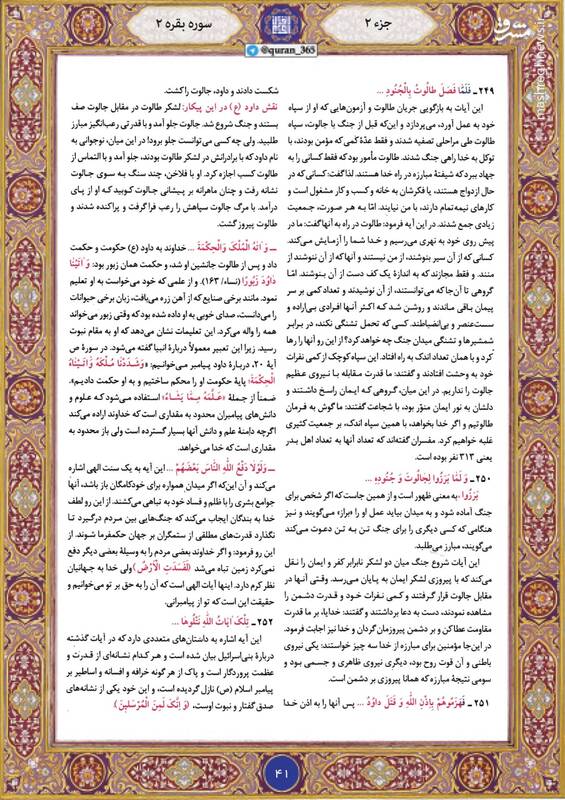 سوره بقره ۲
جزء ۲
مشرق
mashreghnews.ir
@quran_365
۲۴۹ـ فَلَمّا فَصَلَ طالُوتُ بِالْجُنُودِ ...
این آیات به بازگویی جریان طالوت و آزمون‌هایی که او از سپاه
خود به عمل آورد، می‌پردازد و این‌که قبل از جنگ با جالوت، سپاه
طالوت طی مراحلی تصفیه شدند و فقط عدّهٔ کمی که مؤمن بودند، با
توکل به خدا راهی جنگ شدند. طالوت مأمور بود که فقط کسانی را به
جهاد ببرد که شیفتهٔ مبارزه در راه خدا هستند. لذا گفت: کسانی که در
حال ازدواج هستند، یا فکرشان به خانه و کسب و کار مشغول است و
کارهای نیمه‌تمام دارند، با من نیایند. امّا به هر صورت، جمعیت
زیادی جمع شدند. در این آیه فرمود: طالوت در راه به آنها گفت: ما در
پیش روی خود به نهری می‌رسیم و خدا شما را آزمایش می‌کند.
کسانی که از آن سیر بنوشند، از من نیستند و آنها که از آن ننوشند از
منند. و فقط مجازند که به اندازهٔ یک کف دست از آن بنوشند. امّا
گروهی تا آن‌جا که می‌توانستند، از آن نوشیدند و تعداد کمی بر سر
پیمان باقی ماندند و روشن شد که اکثر آنها افرادی بی‌اراده و
سست‌عنصر و بی‌انضباطند. کسی که تحمل تشنگی نکند، در برابر
شمشیرها و تشنگی میدان جنگ چه خواهد کرد؟ از این رو آنها را رها
کرد و با همان تعداد اندک به راه افتاد. این سپاه کوچک از کمی نفرات
خود به وحشت افتادند و گفتند: ما قدرت مقابله با نیروی عظیم
جالوت را نداریم. در این میان، گروهی که ایمان راسخ داشتند و
دلشان به نور ایمان منوّر بود، با شجاعت گفتند: ما گوش به فرمان
طالوتیم و اگر خدا بخواهد، با همین سپاه اندک، بر جمعیت کثیری
غلبه خواهیم کرد. مفسران گفته‌اند که تعداد آنها به تعداد اهل بدر
یعنی ۳۱۳ نفر بوده است.
۲۵۰ـ وَ لَمّا بَرَزُوا لِجالُوتَ وَ جُنُودِهِ ...
«بَرَزُوا» به معنی ظهور است و از همین جاست که اگر شخص برای
جنگ آماده شود و به میدان بیاید عمل او را «براز» می‌گویند و نیز
هنگامی که کسی دیگری را برای جنگ تن به تن دعوت می‌کند
می‌گویند، مبارز می‌طلبد.
این آیات شروع جنگ میان دو لشکر نابرابر کفر و ایمان را نقل
می‌کند که با پیروزی لشکر ایمان به پایان می‌رسد. وقتی آنها در
مقابل جالوت قرار گرفتند و کمی نفرات خود و قدرت دشمن را
مشاهده نمودند، دست به دعا برداشتند و گفتند: خدایا، بر ما قدرت
مقاومت عطا کن و بر دشمن پیروزمان گردان و خدا نیز اجابت فرمود.
در این‌جا مؤمنین برای مبارزه از خدا سه چیز خواستند: یکی نیروی
باطنی و آن قوت روح بود، دیگری نیروی ظاهری و جسمی بود و
سومی نتیجهٔ مبارزه که همانا پیروزی بر دشمن است.
۲۵۱ـ فَهَزَمُوهُمْ بِإِذْنِ اللهِ وَ قَتَلَ داوُدُ ... پس آنها را به اذن خدا
شکست دادند و داود، جالوت را کشت.
نقش داود (ع) در این پیکار: لشکر طالوت در مقابل جالوت صف
بستند و جنگ شروع شد. جالوت جلو آمد و با قدرتی رعب‌انگیز مبارز
طلبید. ولی چه کسی می‌توانست جلو برود! در این میان، نوجوانی به
نام داود که با برادرانش در لشکر طالوت بودند، جلو آمد و با التماس از
طالوت کسب اجازه کرد. او با فلاخن، چند سنگ به سوی جالوت
نشانه رفت و چنان ماهرانه بر پیشانی جالوت کوبید که او از پای
درآمد. با مرگ جالوت سپاهش را رعب فرا گرفت و پراکنده شدند و
طالوت پیروز گشت.
ـ وَ آتاهُ الْمُلْكَ وَالْحِكْمَةَ ... خداوند به داود (ع) حکومت و حکمت
داد و پس از طالوت جانشین او شد، و حکمت همان زبور بود: وَ آتَيْنا
داوُدَ زَبُورًا (نساء/ ۱۶۳). و از علمی که خود می‌خواست به او تعلیم
نمود، مانند برخی صنایع که از آهن زره می‌یافت، زبان برخی حیوانات
را می‌دانست، صدای خوبی به او داده شده بود که وقتی زبور می‌خواند
همه را واله می‌کرد. این تعلیمات نشان می‌دهد که او به مقام نبوت
رسید. زیرا این تعبیر معمولاً دربارهٔ انبیا گفته می‌شود. در سورهٔ ص
آیهٔ ۲۰، دربارهٔ داود پیامبر می‌خوانیم: «وَشَدَدْنا مُلْكَهُ وَآتَيْناهُ
الْحِكْمَةَ؛ پایهٔ حکومت او را محکم ساختیم و به او حکمت دادیم».
ضمناً از جملهٔ «عَلَّمَهُ مِمّا يَشاءُ» استفاده می‌شود که علوم و
دانش‌های پیامبران محدود به مقداری است که خداوند اراده می‌کند
اگرچه دامنهٔ علم و دانش آنها بسیار گسترده است ولی باز محدود به
مقداری است که خدا می‌خواهد.
ـ وَلَوْلا دَفْعُ اللهِ النّاسَ بَعْضَهُمْ ... این آیه به یک سنت الهی اشاره
می‌کند و آن این‌که اگر میدان همواره برای خودکامگان باز باشد، آنها
جوامع بشری را با ظلم و فساد خود به تباهی می‌کشند. از این رو لطف
خدا به بندگان ایجاب می‌کند که جنگ‌هایی بین مردم درگیرد تا
نگذارد قدرت‌های مطلقی از ستمگران بر جهان حکمفرما شوند. از
این رو فرمود: و اگر خداوند بعضی مردم را به وسیلهٔ بعضی دیگر دفع
نمی‌کرد زمین تباه می‌شد (لَفَسَدَتِ الْأَرْضُ) ولی خدا به جهانیان
نظر کرم دارد. اینها آیات الهی است که آن را به حق بر تو می‌خوانیم و
حقیقت این است که تو از پیامبرانی.
۲۵۲ـ تِلْكَ آياتُ اللهِ نَتْلُوها ...
این آیه اشاره به داستان‌های متعددی دارد که در آیات گذشته
دربارهٔ بنی‌اسرائیل بیان شده است و هر کدام نشانه‌ای از قدرت و
عظمت پروردگار است و پاک از هر گونه خرافه و افسانه و اساطیر بر
پیامبر اسلام (ص) نازل گردیده است، و این خود یکی از نشانه‌های
صدق گفتار و نبوت اوست، (وَ إِنَّكَ لَمِنَ الْمُرْسَلِينَ)
۴۱